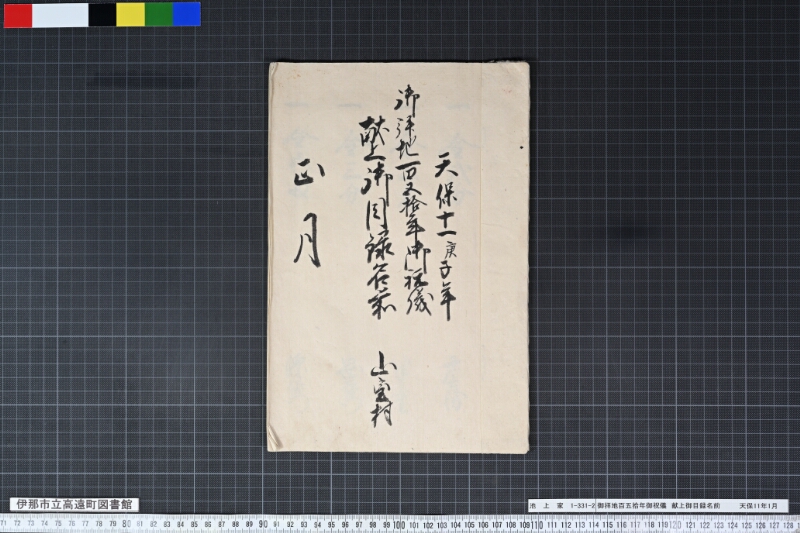 天保十一庚子年
御拝地百五拾年御祝儀
献上御目録名前
山室村
正月
伊那市立高遠町図書館
池上家 1-331-2 御拝地百五拾年御祝儀 献上御目録名前 天保11年1月